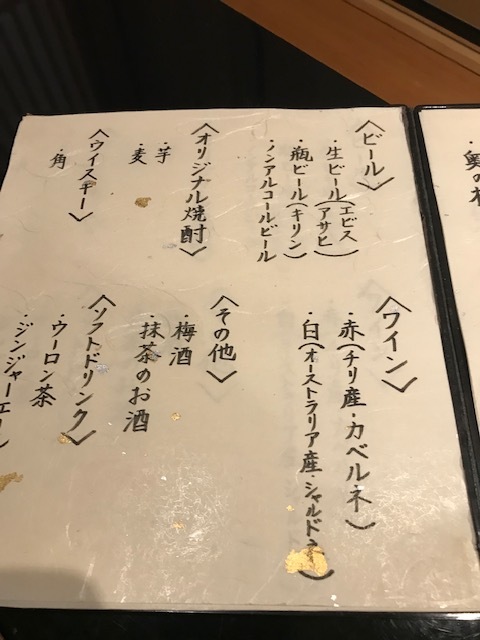 〈ビール〉
・生ビール(エビス
アサヒ)
・瓶ビール(キリン)
・ノンアルコールビール
〈オリジナル焼酎〉
・芋
・麦
〈ウイスキー〉
・角
〈ワイン〉
・赤(チリ産・カベルネ)
・白(オーストラリア産・シャルドネ)
〈その他〉
・梅酒
・抹茶のお酒
〈ソフトドリンク〉
・ウーロン茶
・ジンジャーエール